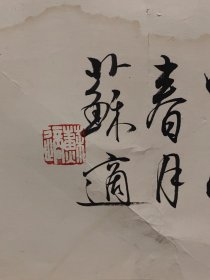 春月
蘇適